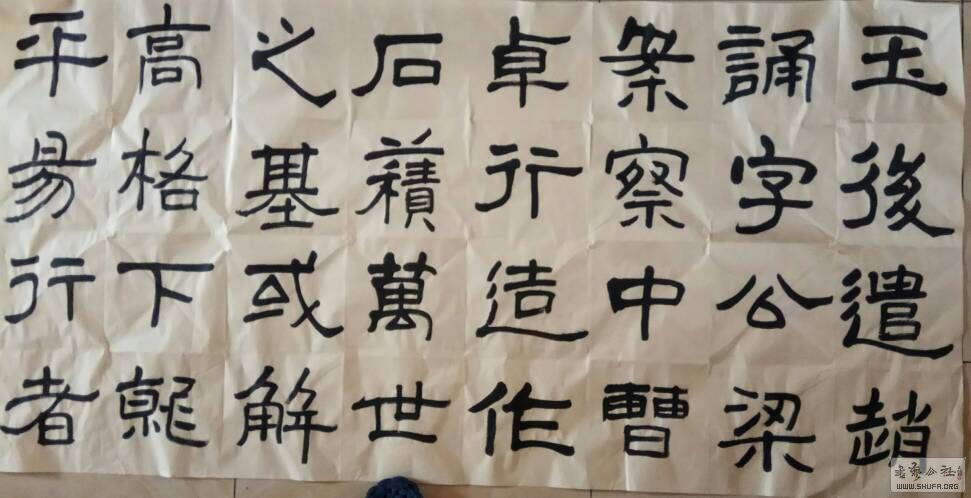 玉後遣趙
誦字公梁
案察中曹
卓行造作
石積萬世
之基或解
高格下就
平易行者
书艺公社
WWW.SHUFA.ORG